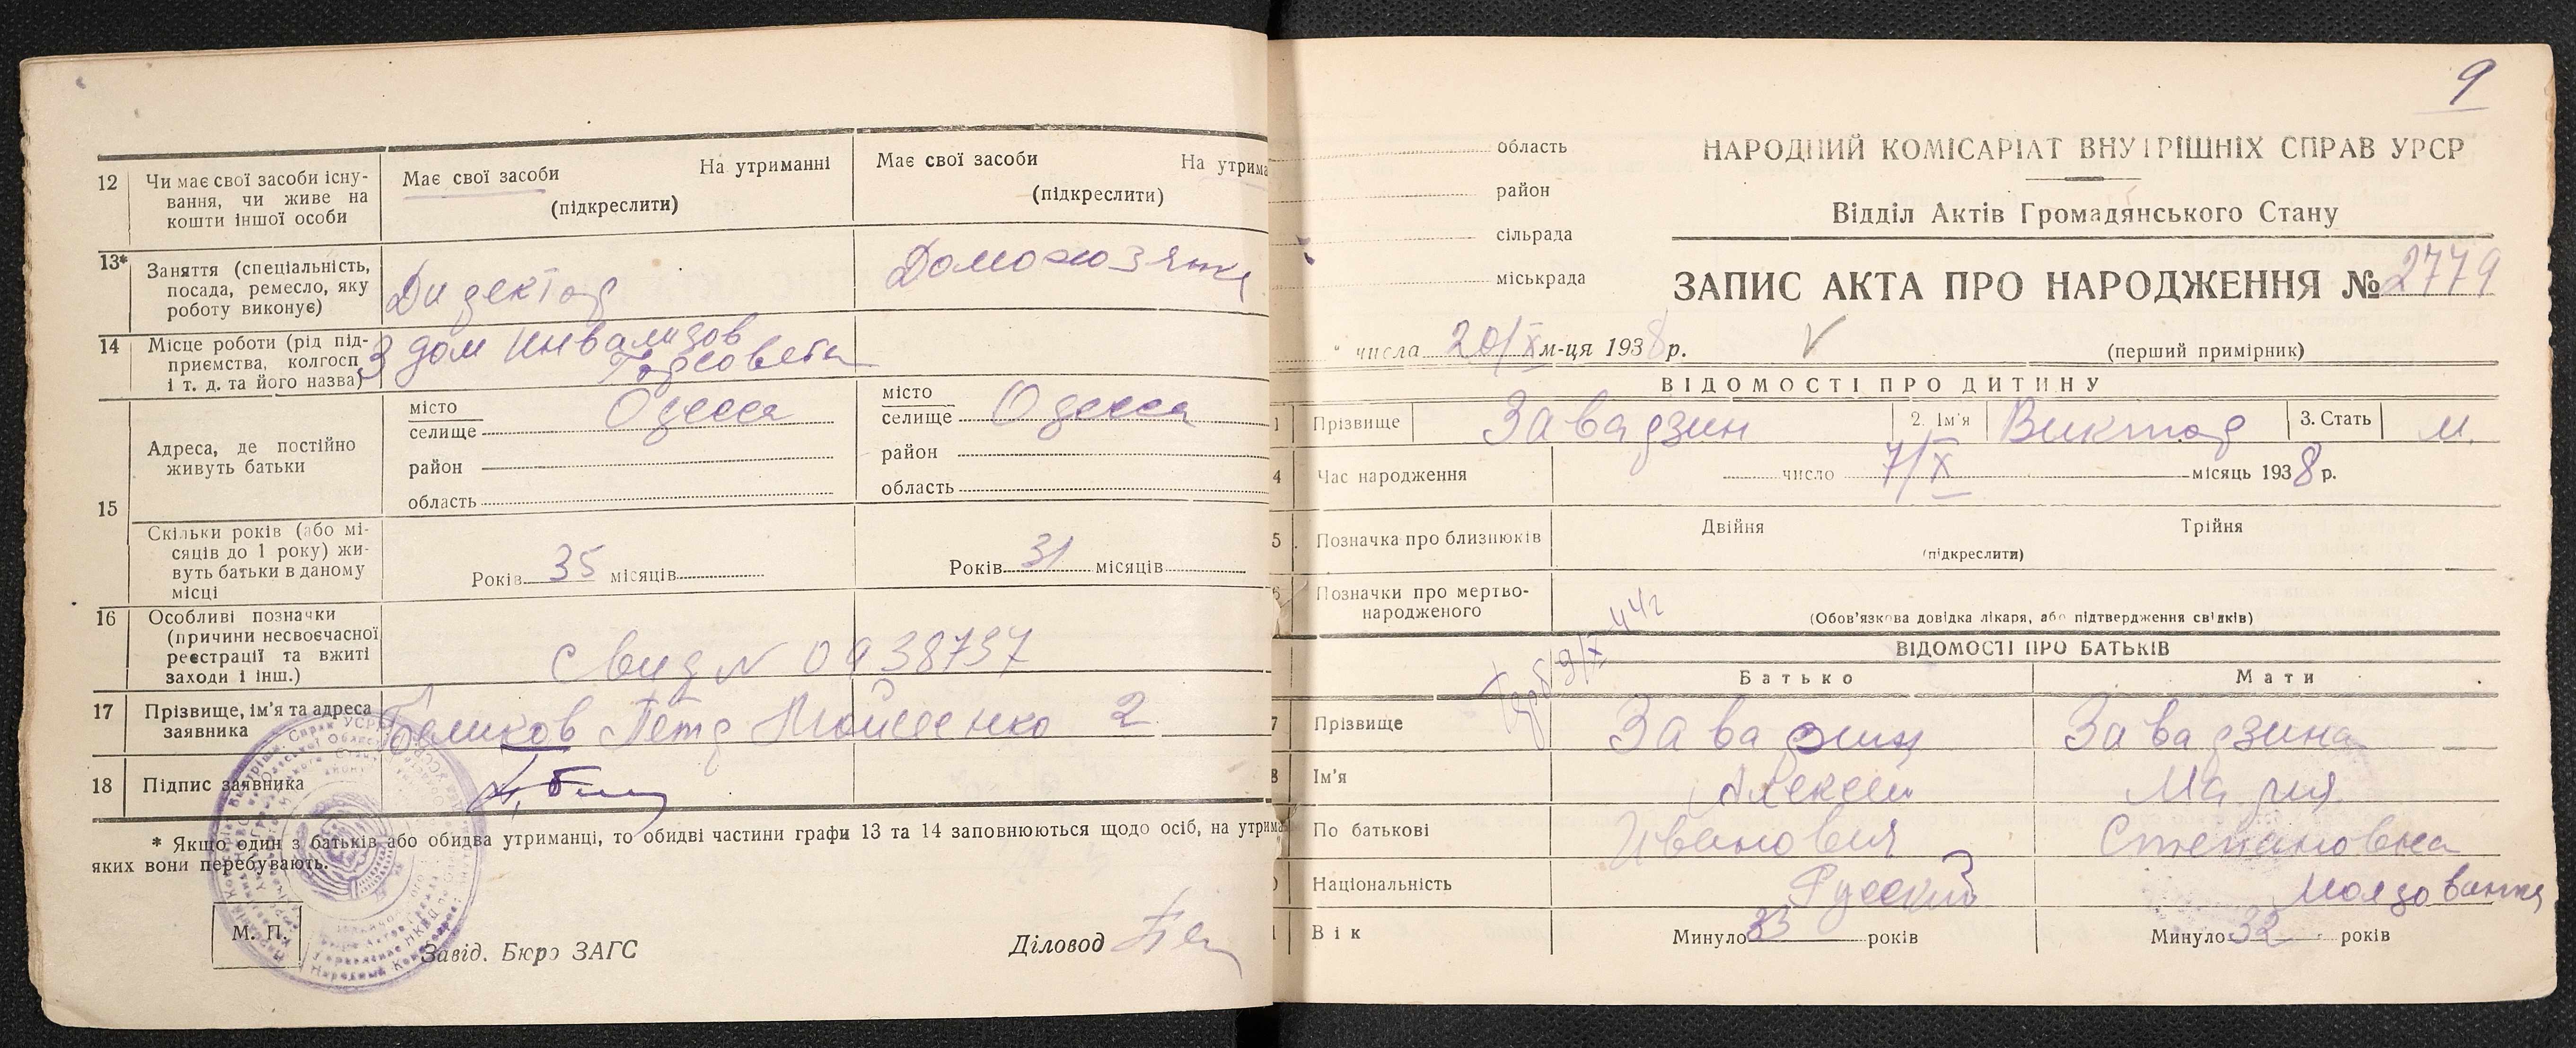 12 Чи має свої засоби існу-
вання, чи живе на
кошти іншої особи
Має свої засоби На утриманні
(підкреслити)
Має свої засоби На утрима
(підкреслити)
13* Заняття (спеціальність,
посада, ремесло, яку
роботу виконує)
Директор
Домохозяйка
14 Місце роботи (рід під-
приємства, колгосп
і т. д. та його назва)
3 дом инвалидов
Горсовета
15 Адреса, де постійно
живуть батьки
місто
селище Одесса
район
область
місто
селище Одесса
район
область
Скільки років (або мі-
сяців до 1 року) жи-
вуть батьки в даному
місці
Років 35 місяців
Років 31 місяців
16 Особливі позначки
(причини несвоєчасної
реєстрації та вжиті
заходи і інш.)
Свид N 0938737
17 Прізвище, ім'я та адреса
заявника
Беликов Петр 2
18 Підпис заявника
* Якщо один з батьків або обидва утриманці, то обидві частини графи 13 та 14 заповнюються щодо осіб, на утрима
яких вони перебувають.
М. П.
Завід. Бюро ЗАГС
Діловод
9
область
район
сільрада
міськрада
НАРОДНИЙ КОМІСАРІАТ ВНУТРІШНІХ СПРАВ УРСР
Відділ Актів Громадянського Стану
ЗАПИС АКТА ПРО НАРОДЖЕННЯ № 2779
" числа 20/X м-ця 1938 р.
(перший примірник)
ВІДОМОСТІ ПРО ДИТИНУ
1 Прізвище Завадзин 2. Ім'я Виктор 3. Стать м.
4 Час народження число 7/X місяць 1938 р.
5 Позначка про близнюків Двійня Трійня
(підкреслити)
6 Позначки про мертво-
народженого
(Обов'язкова довідка лікаря, або підтвердження свідків)
9/X 44г
ВІДОМОСТІ ПРО БАТЬКІВ
Батько Мати
7 Прізвище Завадзин Завадзина
8 Ім'я Алексей Мария
По батькові Иванович Степановна
Національність Русский Молдованка
Вік Минуло 33 років Минуло 32 років